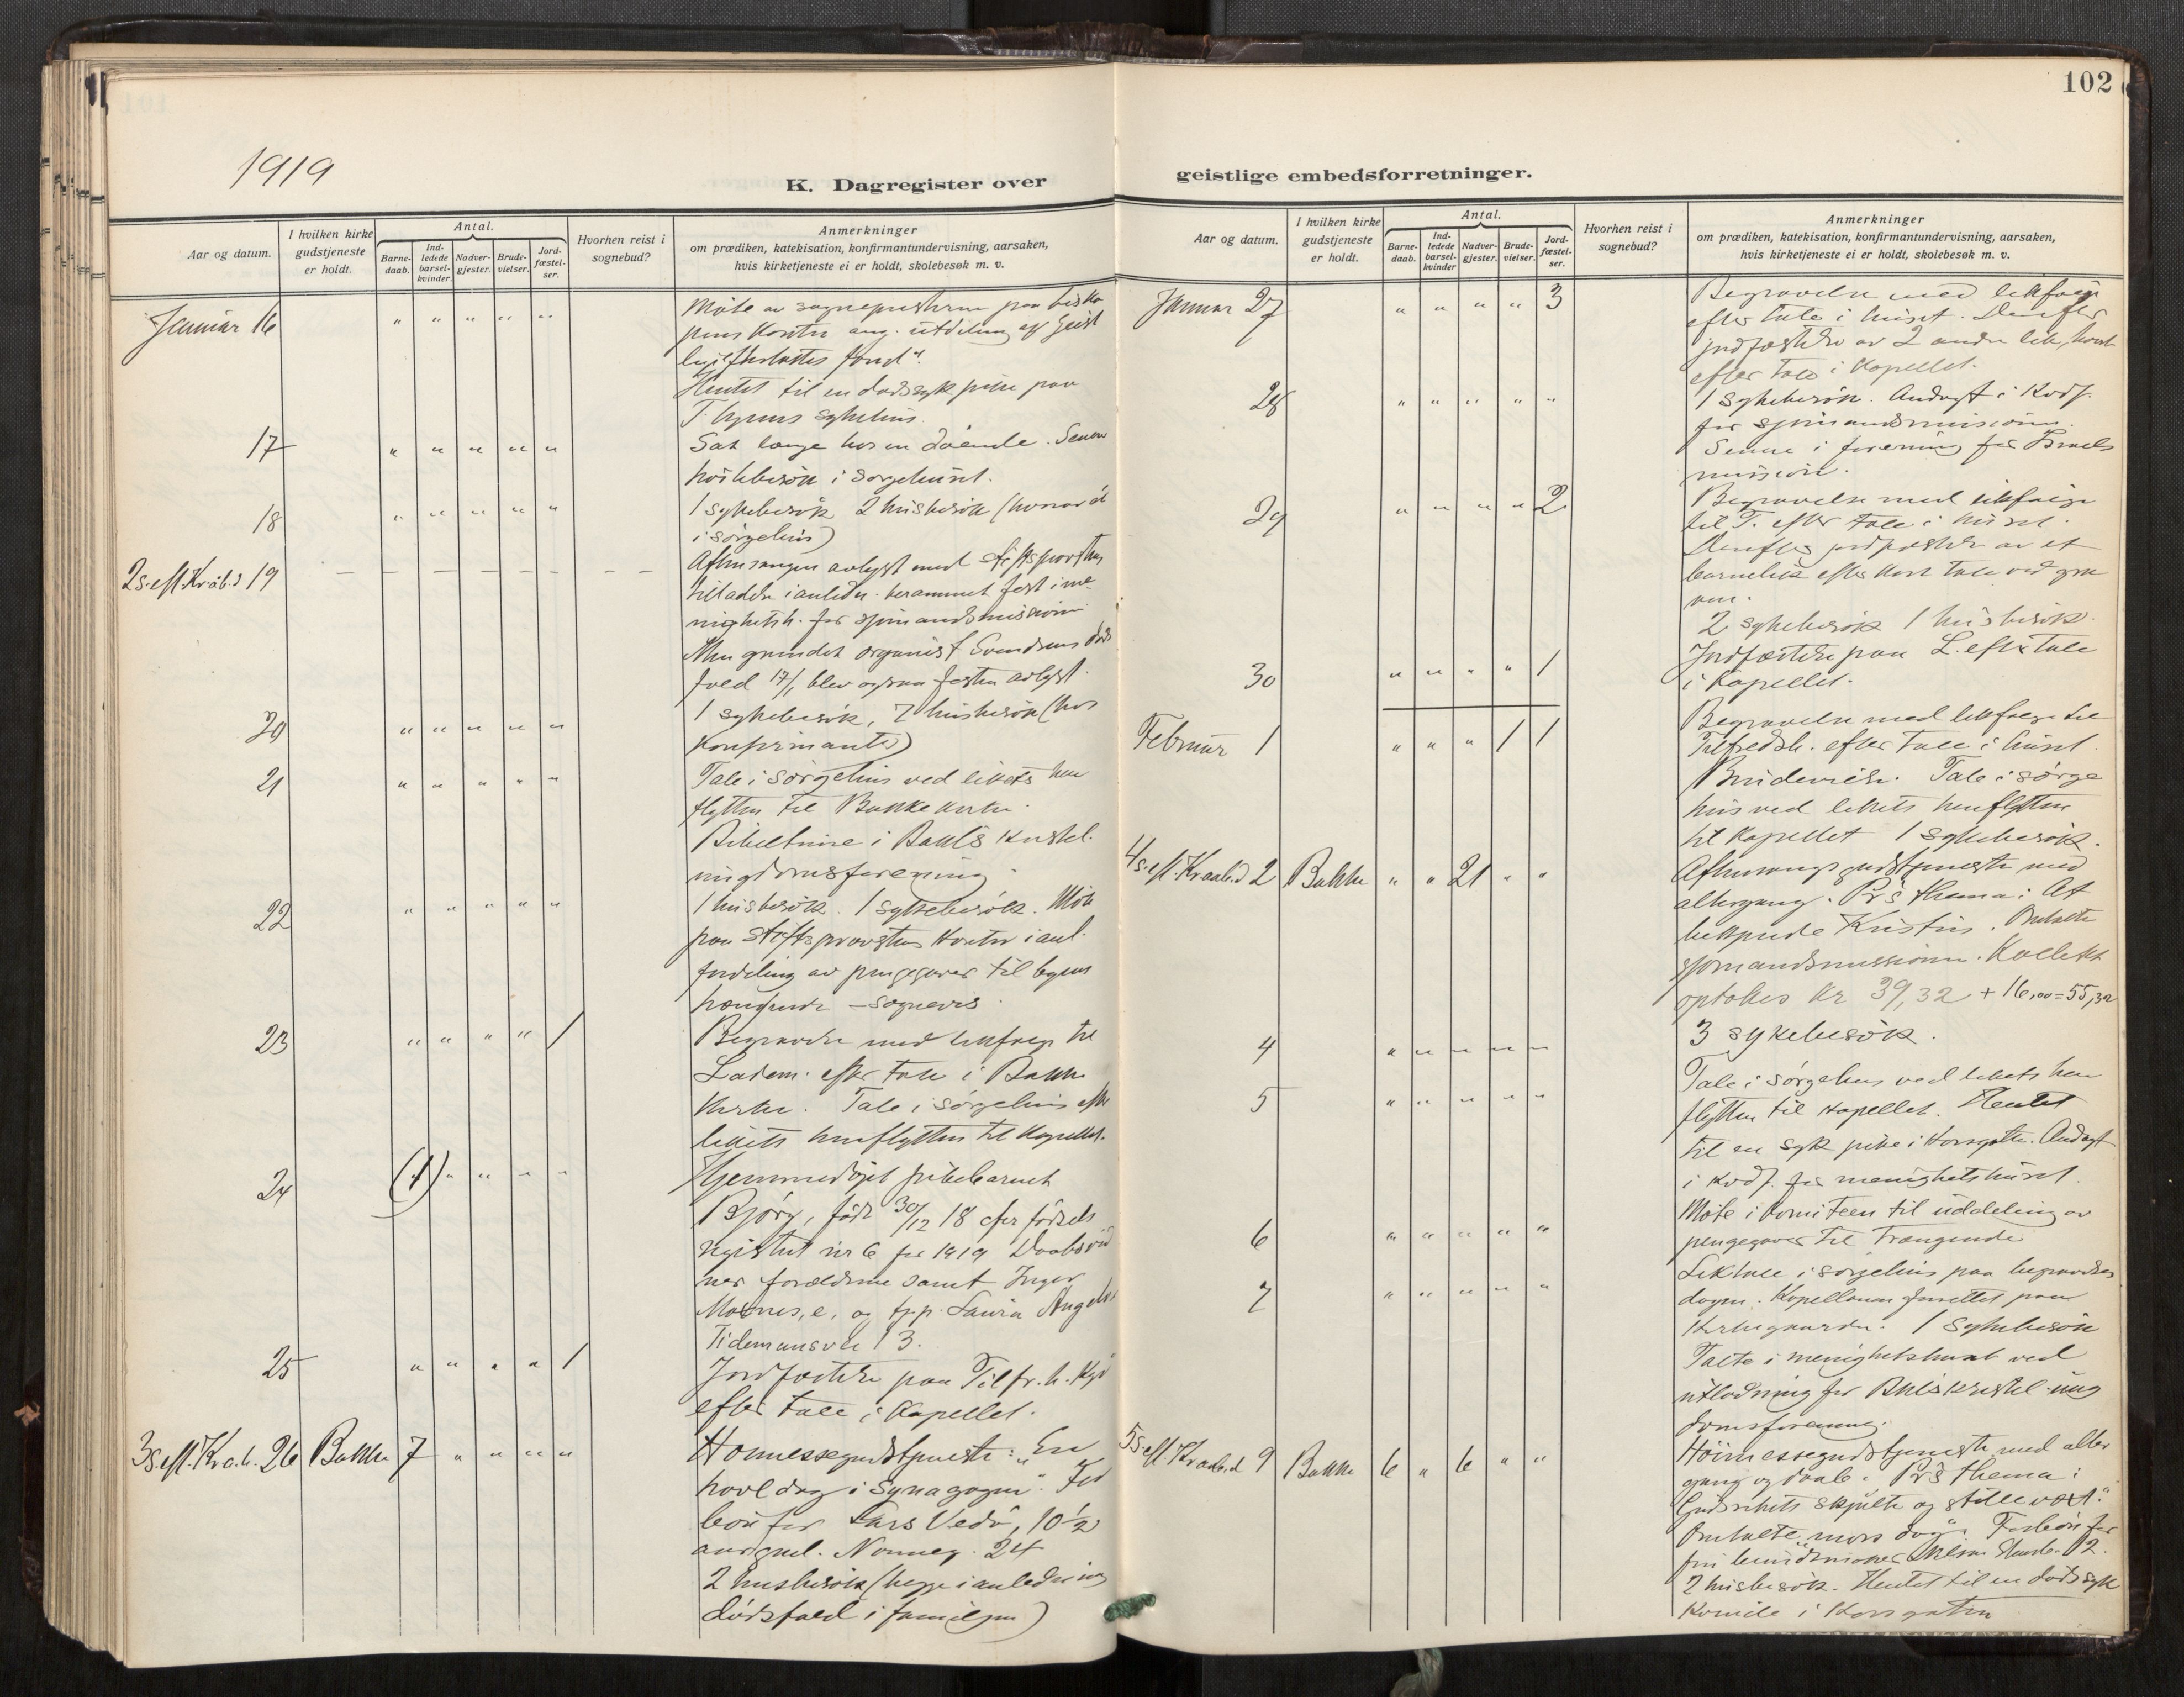 102
1919
K. Dagregister over
geistlige embedsforretninger.
Aar og datum.
I hvilken kirke gudstjeneste er holdt.
Antal.
Barne-daab.
Ind-ledede barsel-kvinder.
Nadver-gjester.
Brude-vielser.
Jord-fæstel-ser.
Hvorhen reist i sognebud?
Anmerkninger
om prædiken, katekisation, konfirmantundervisning, aarsaken,
hvis kirketjeneste ei er holdt, skolebesøk m. v.
Januar 16 " " " " "
Møte av sognepresterne paa bisko
pens kontor ang. utdeling af Geist
fond".
Hentet til en dødssyk pike paa
T.hjems sykehus.
17 " " " " "
Sat længe hos en døende. Senere
i sørgehuset.
18 " " " " "
1 sykebesøk 2 husbesøk (hvorav et
i sørgehus)
2s.eft.Kr.aab.d 19 — — — — — — —
Aftensangen avlyst med stiftsprovstens
tilladelse i anledn. berammet fest i me-
nighetsh. for sjømandsmissionen
Men grundet organist Svendsens døds
fald 17/1 blev ogsaa festen avlyst.
20 " " " " "
1 sykebesøk, 7 husbesøk (hos
konfirmanter)
21 " " " " "
Tale i sørgehus ved likets hen
flytten til Bakke kirke.
Bibeltime i Bakl's kristel.
ungdomsforening.
22 " " " " "
1 husbesøk. 1 sykebesøk. Møte
paa stiftsprovstens kontor i anl.
fordeling av pengegaver til byens
trængende – sognevis.
23 " " " " 1
Begravelse med likfølge til
Ladem. efter tale i Bakke
kirke. Tale i sørgehus efter
likets henflytten til kapellet.
24 (1) " " " "
Hjemmedøpt pikebarnet
Bjørg, født 30/12 18 cfr fødsels
registret nr 6 for 1919 Daabsvid
ner forældrene samt Inger
Moxnes, e. og tjp. Laura
Tidemansvei 13.
25 " " " " 1
Jordfæstelse paa Tilfr.h. Kgd
efter tale i Kapellet.
3s.eft.Kr.a.b. 26 Bakke 7 " " " "
Høimessegudstjeneste: „En
hvildag i Synagogen". For
bøn for Lars Vedø, 10½
aar gml. Nonneg. 24
2 husbesøk (begge i anledning
dødsfald i familjen)
Aar og datum.
I hvilken kirke gudstjeneste er holdt.
Antal.
Barne-daab.
Ind-ledede barsel-kvinder
Nadver-gjester.
Brude-vielser.
Jord-fæstel-ser.
Hvorhen reist i sognebud?
Anmerkninger
om prædiken, katekisation, konfirmantundervisning, aarsaken,
hvis kirketjeneste ei er holdt, skolebesøk m. v.
Januar 27 " " " " 3
Begravelse med likfølge
efter tale i huset. Derefter
jordfæstelse av 2 andre lik, hvert
efter tale i Kapellet.
28 " " " " "
1 sykebesøk. Andagt i Kvdf.
for sjømandsmissionen.
Senere i forening for Israels
mission.
29 " " " " 2
Begravelse med likfølge
til T. efter tale i huset.
Derefter jordfæstelse av et
barnelik efter kort tale ved gra
ven.
2 sykebesøk 1 husbesøk.
30 " " " " 1
Jordfæstelse paa L. efter tale
i Kapellet.
Februar 1 " " " 1 1
Begravelse med likfølge til
Tilfredsh. efter tale i huset.
Brudevielse. Tale i sørge
hus ved likets henflytten
til Kapellet 1 sykebesøk.
4s.eft.Kr.aab.d 2 Bakke " " 21 " "
Aftensangsgudstjeneste med
altergang. Pr's thema: At
bekjende Kristus. Omtalte
sjømandsmissionen. Kollekt
optokes kr 39,32 + 16,00 = 55,32
4 " " " " "
3 sykebesøk.
5 " " " " "
Tale i sørgehus ved likets hen
flytten til kapellet. Hentet
til en syk pike i Korsgaten. Andagt
i kvdf. for menighetshuset.
6 " " " " "
Møte i komiteen til uddeling av
pengegaver til trængende
7 " " " " "
Liktale i sørgehus paa begravelses
dagen. Kapellanen forrettet paa
kirkegaarden. 1 sykebesøk
Talte i menighetshuset ved
utlodning for Bkl's kristel. ung
domsforening.
5s.eft.Kr.aab.d 9 Bakke 6 " 6 " "
Høimessegudstjeneste med alter
gang og daab. Pr's thema:
Gudsrikets skjulte og stille vext."
Omtalte „mors dag". Forbøn for
2.
2 husbesøk. Hentet til en dødssyk
kvinde i Korsgaten